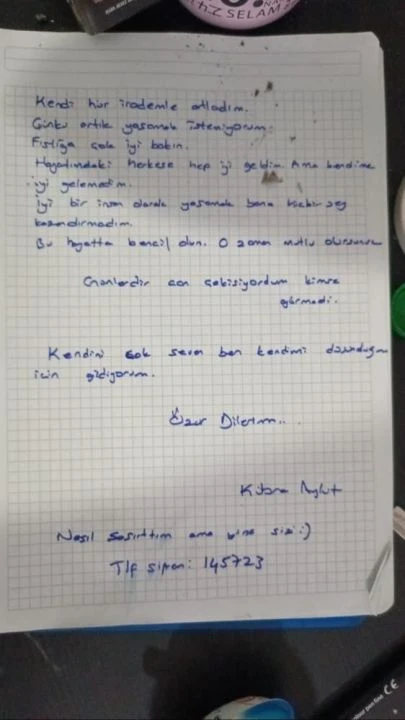 SELAM
Kendi hür irademle atladım.
Çünkü artık yaşamak istemiyorum.
Fıstığa çok iyi bakın.
Hayatımdaki herkese hep iyi geldim. Ama kendime
iyi gelemedim.
İyi bir insan olarak yaşamak bana hiçbir şey
kazandırmadım.
Bu hayatta bencil olun. O zaman mutlu olursunuz
Günlerdir can çekişiyordum kimse
görmedi.
Kendini çok seven ben kendimi
için gidiyorum.
Özür Dilerim...
Kübra
Nasıl şaşırttım ama yine sizi :)
Tlf şifrem: 145723